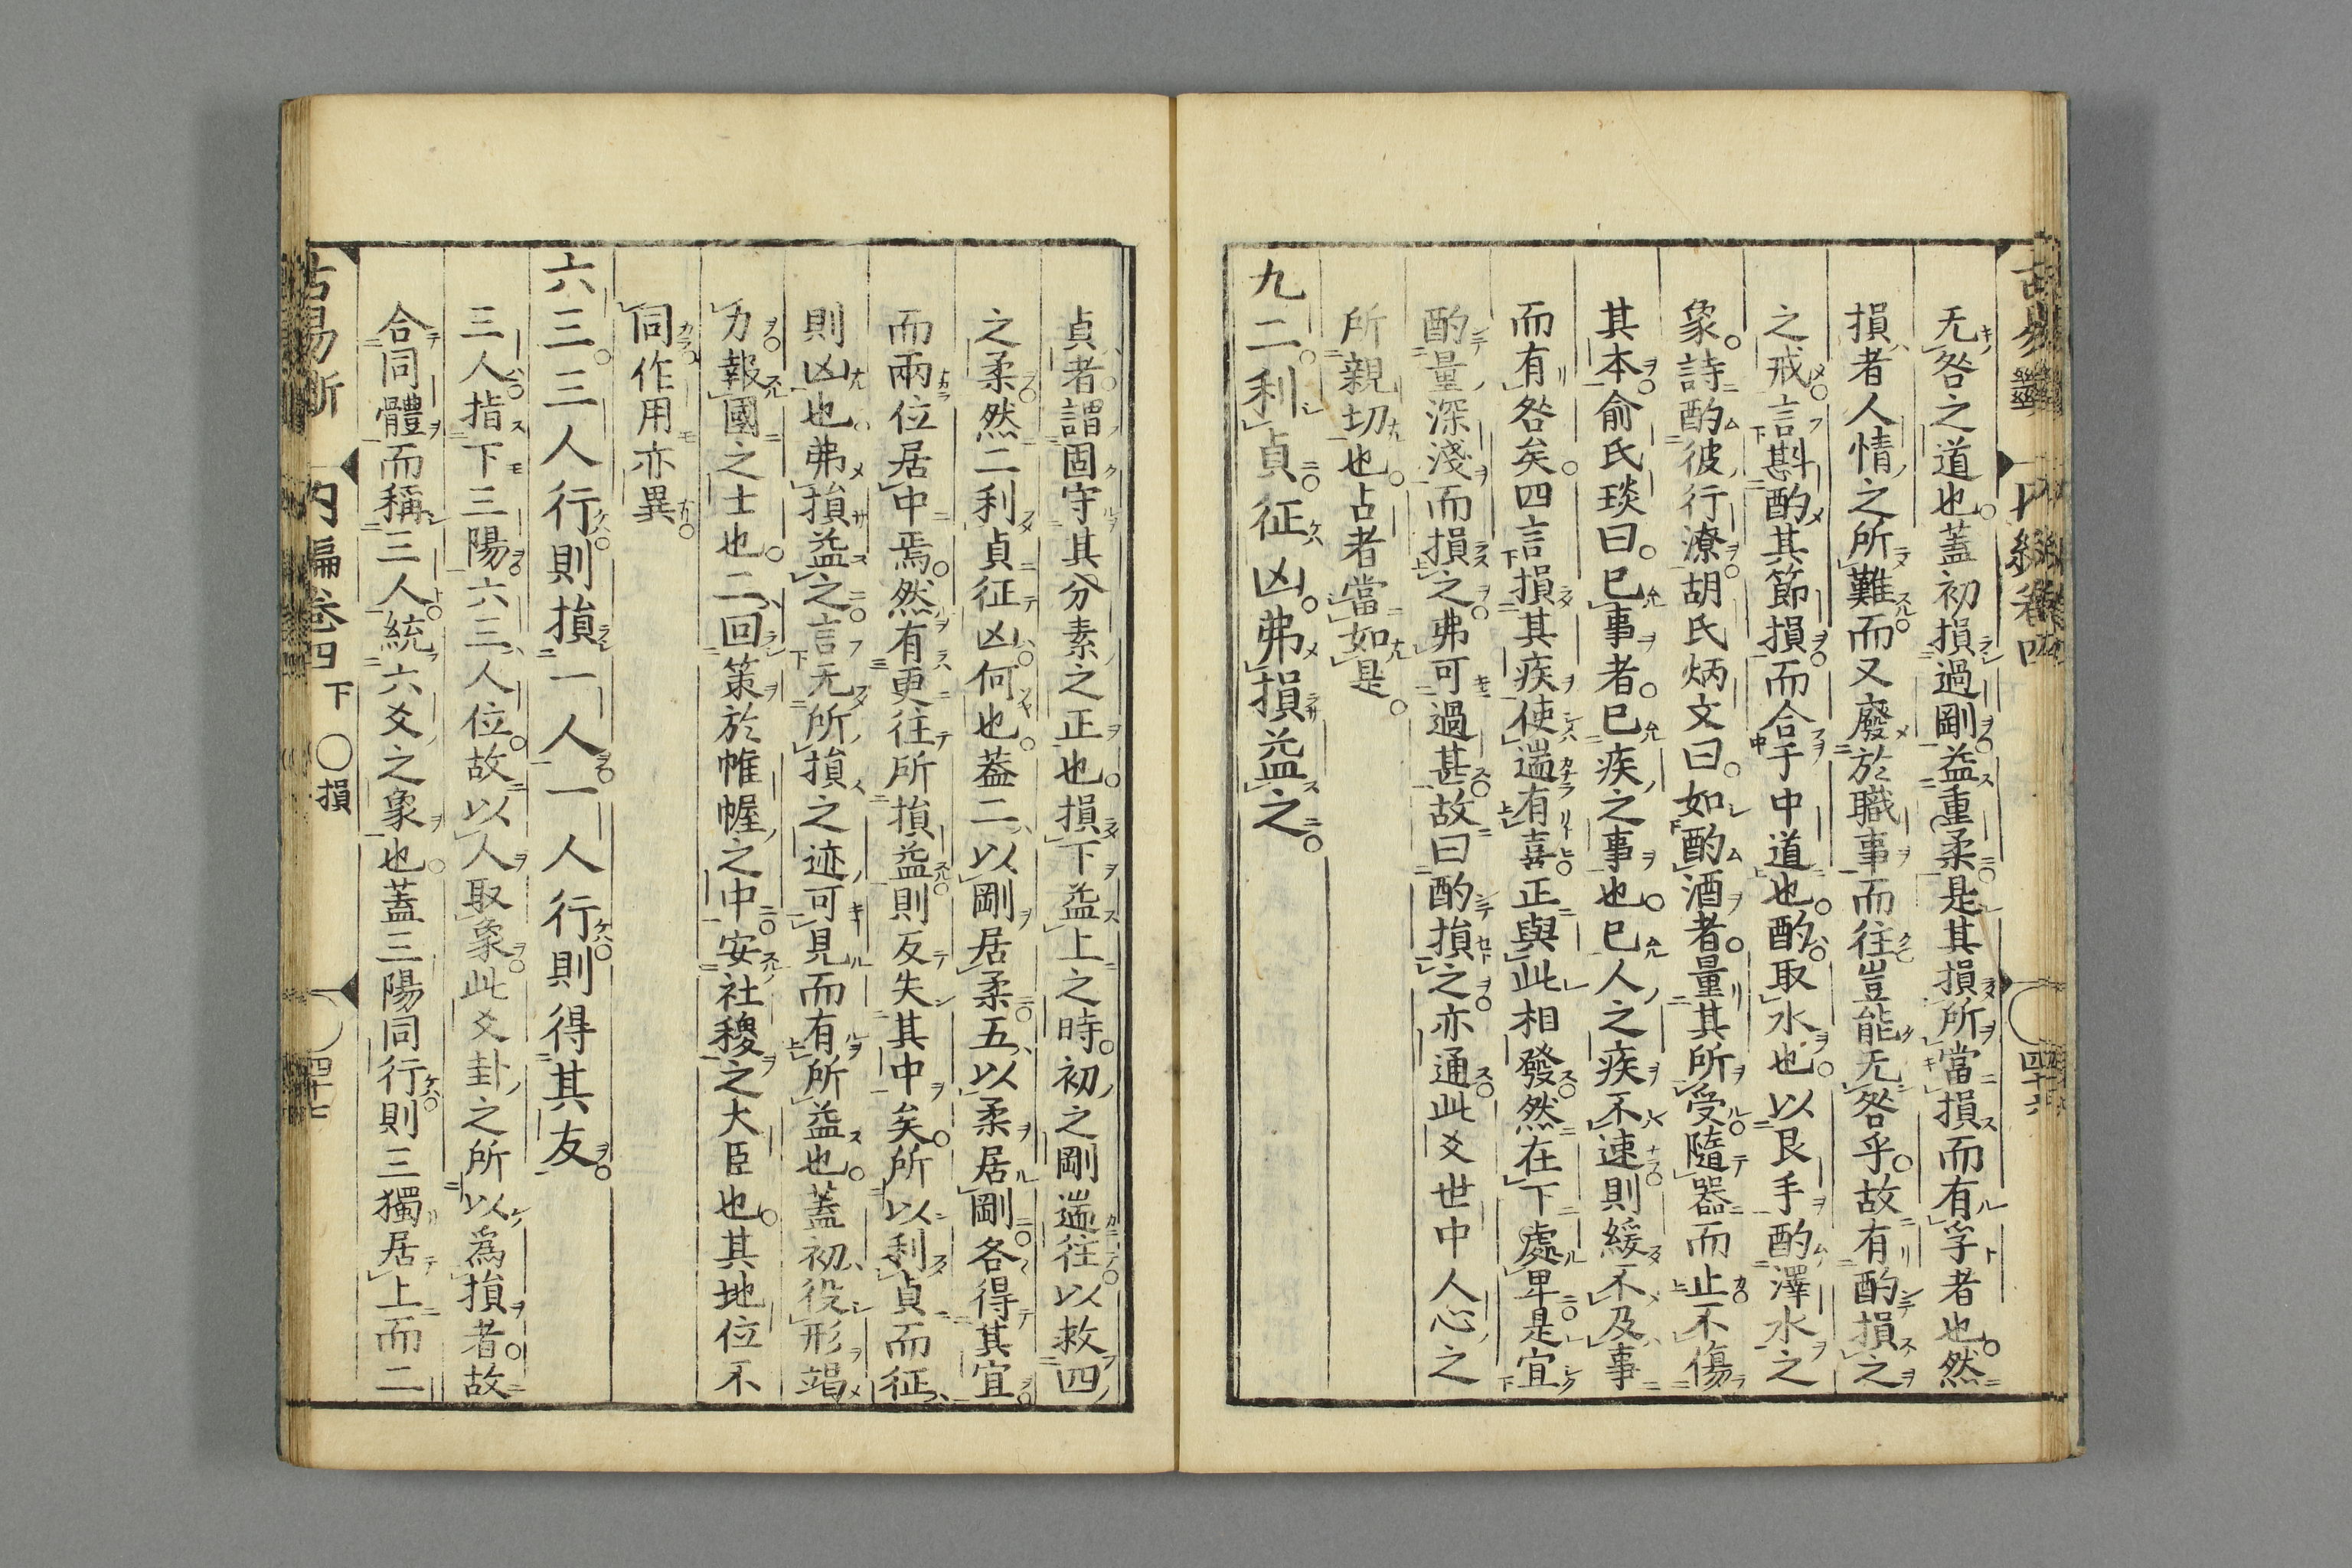 无咎之道也蓋初損過剛益重柔是其損所當損而有孚者也然
損者人情之所難而又廢於職事而往豈能无咎乎故有酌損之
之戒言斟酌其節損而合乎中道也酌取水也以艮手酌澤水之
象詩酌彼行潦胡氏炳文曰如酌酒者量其所受隨器而止不傷
其本俞氏琰曰已事者已疾之事也已人之疾不速則緩不及事
而有咎矣四言損其疾使遄有喜正與此相發然在下處卑是宜
酌量深淺而損之弗可過甚故曰酌損之亦通此爻世中人心之
所親切也占者當如是
九二利貞征凶弗損益之
貞者謂固守其分素之正也損下益上之時初之剛遄往以救四
之柔然二利貞征凶何也蓋二以剛居柔五以柔居剛各得其宜
而兩位居中焉然有更往所損益則反失其中矣所以利貞而征
則凶也弗損益之言无所損之迹可見而有所益也蓋初役形竭
力報國之士也二回策於帷幄之中安社稷之大臣也其地位不
同作用亦異
六三三人行則損一人一人行則得其友
三人指下三陽六三人位故以人取象此爻卦之所以為損者故
合同體而稱三人統六爻之象也蓋三陽同行則三獨居上而二
古易斷 内編卷四 下 〇損 四十七